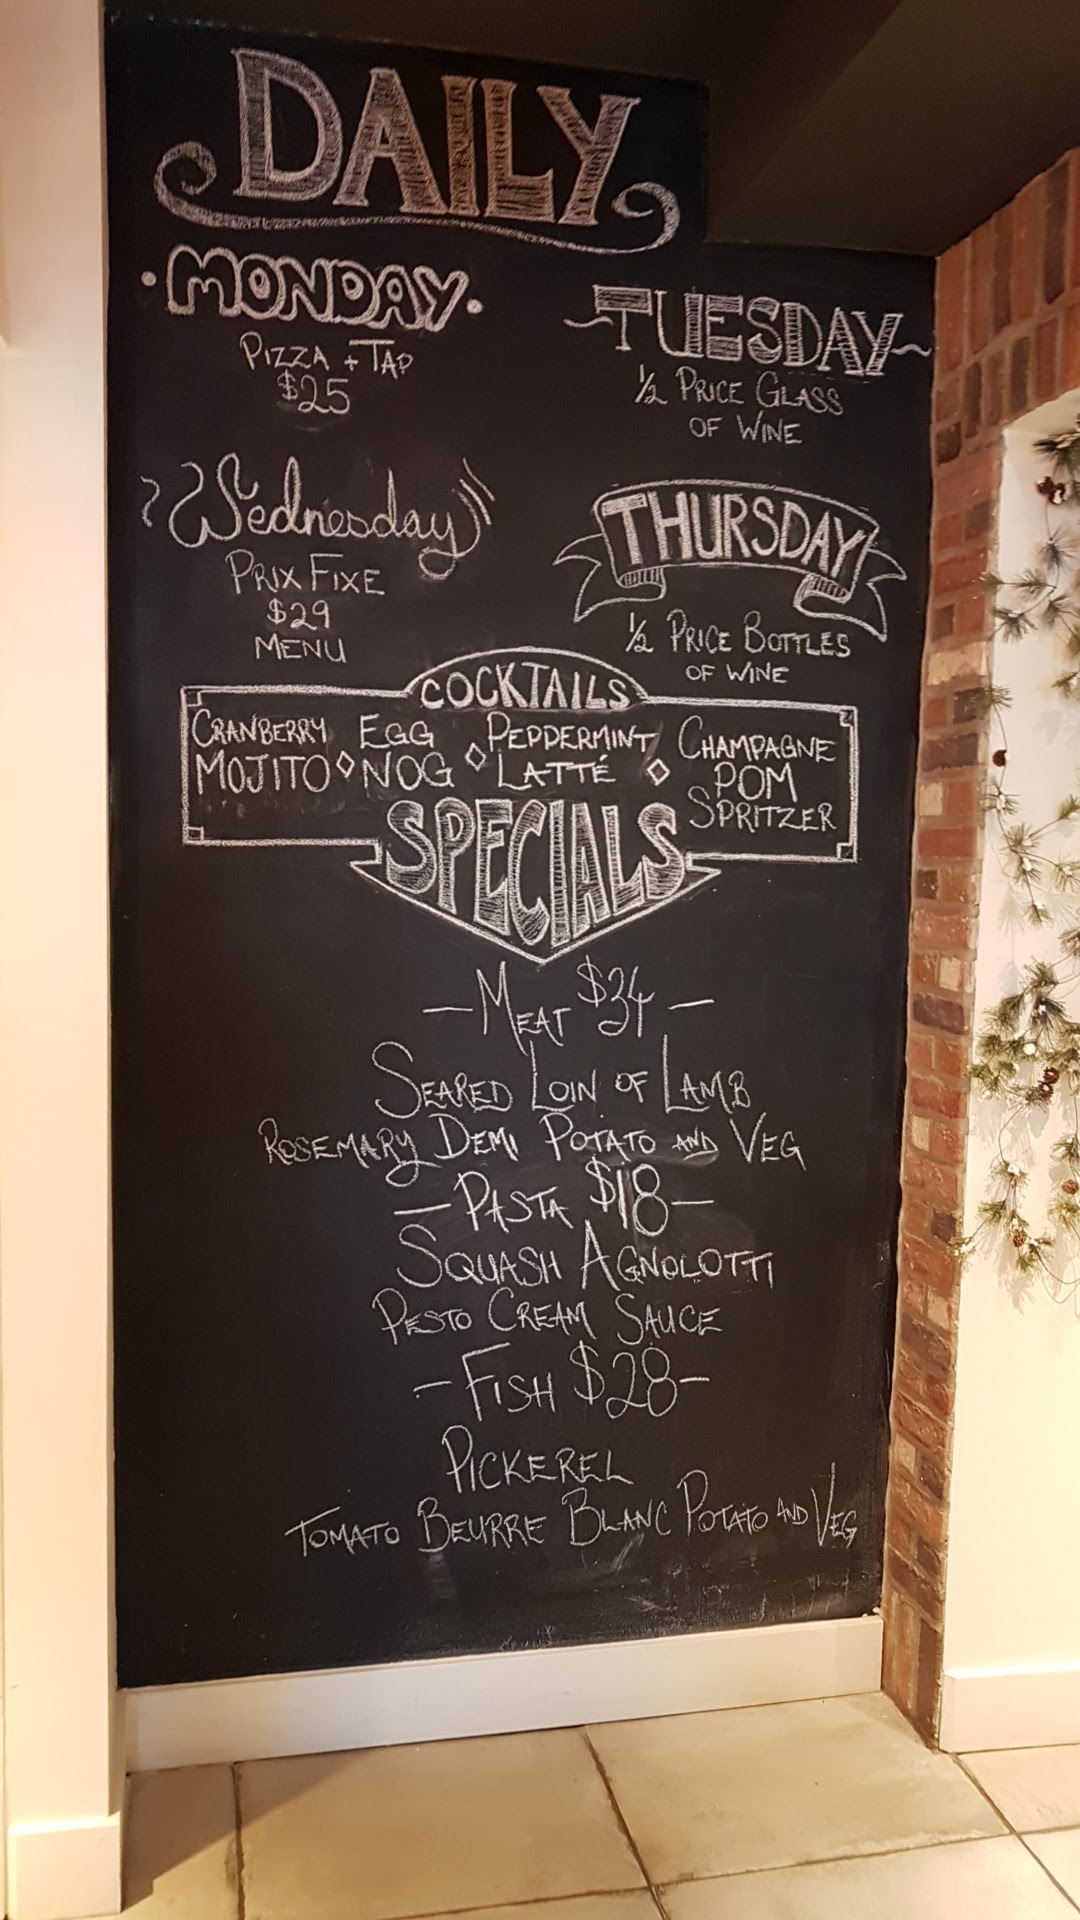 DAILY
MONDAY
PIZZA + TAP
$25
TUESDAY
1/2 PRICE GLASS
OF WINE
Wednesday
PRIX FIXE
$29
MENU
THURSDAY
1/2 PRICE BOTTLES
OF WINE
COCKTAILS
CRANBERRY
MOJITO
EGG
NOG
PEPPERMINT
LATTÉ
CHAMPAGNE
POM
SPRITZER
SPECIALS
— MEAT $34 —
SEARED LOIN OF LAMB
ROSEMARY DEMI POTATO AND VEG
— PASTA $18 —
SQUASH AGNOLOTTI
PESTO CREAM SAUCE
— FISH $28 —
PICKEREL
TOMATO BEURRE BLANC POTATO AND VEG